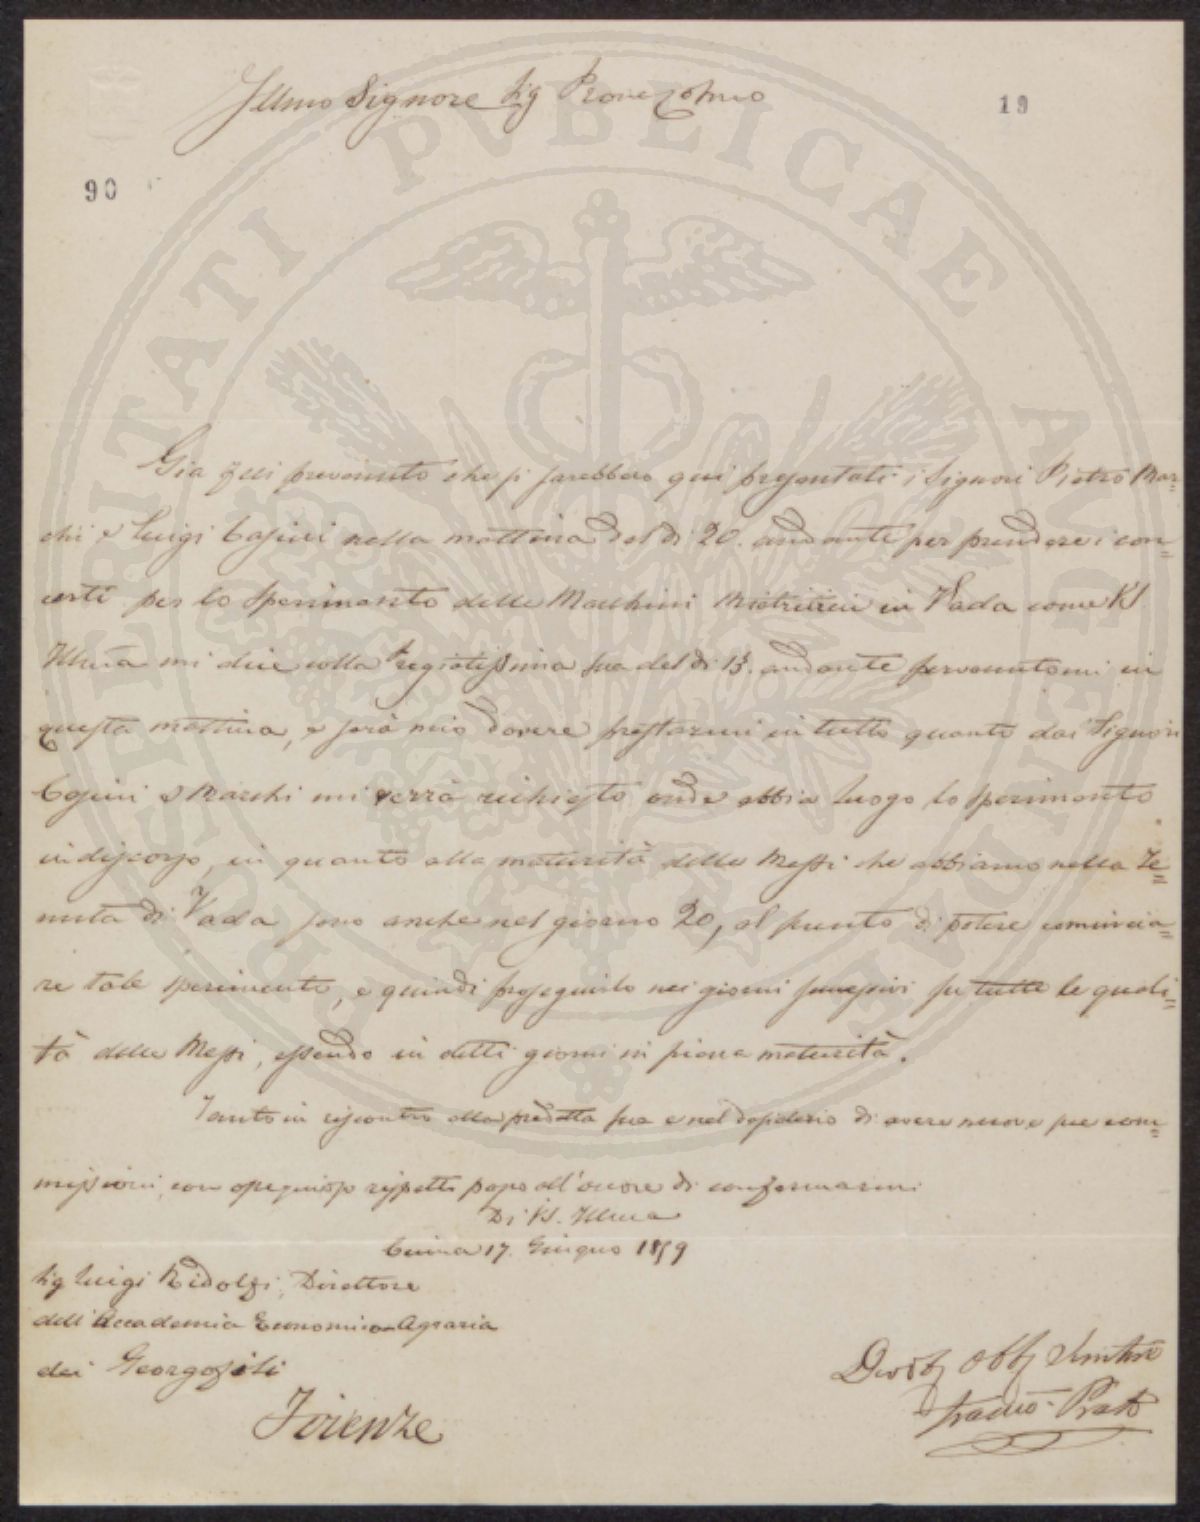 Illmo Signore Sig Prone Colmo
19
90
PROSPERITATI PVBLICAE AVGENDAE
Gia fui prevenuto che si sarebbero qui presentati i Signori Pietro Mar=
chi e Luigi Casini nella mattina del di 20. andante per prendere i con=
certi per lo Sperimento delle Macchine Mietitrici in Vada come VS
Illma mi dice colla Pregiatissima sua del di 15. andante pervenutami in
questa mattina, e sarà mio dovere prestarmi in tutto quanto dai Signori
Casini e Marchi mi verrà richiesto onde abbia luogo lo sperimento
in discorso, in quanto alla maturità delle Messi che abbiamo nella Te=
nuta di Vada sono anche nel giorno 20, al punto di potere comincia=
re tale sperimento, e quindi proseguirlo nei giorni successivi su tutte le quali=
tà delle Messi, essendo in detti giorni in piena maturità.
Tanto in riscontro alla predetta sua e nel desiderio di avere nuove sue com=
missioni, con ossequioso rispetto passo all'onore di confermarmi
Di VS. Illma
Cecina 17. Giugno 1859
Sig Luigi Ridolfi, Direttore
dell'Accademia Economico=Agraria
dei Georgofili
Firenze
Devot Obb Servitore
Prato